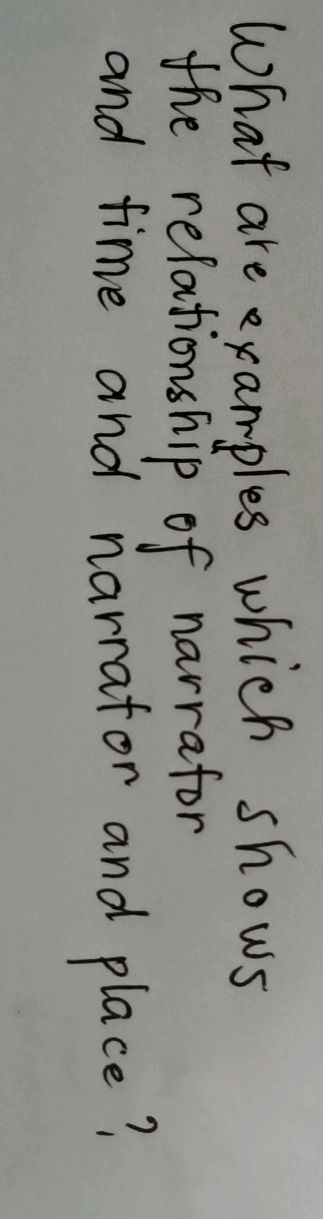 What are examples which shows
the relationship of narrator
and time and narrator and place?